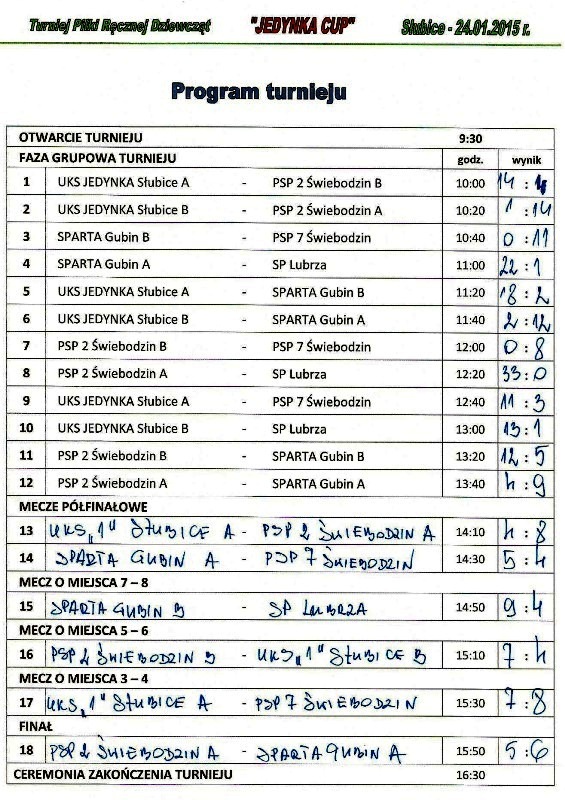 Turniej Piłki Ręcznej Dziewcząt "JEDYNKA CUP" Słubice - 24.01.2015 r.
Program turnieju
OTWARCIE TURNIEJU 9:30
FAZA GRUPOWA TURNIEJU godz. wynik
1 UKS JEDYNKA Słubice A - PSP 2 Świebodzin B 10:00 14 : 4
2 UKS JEDYNKA Słubice B - PSP 2 Świebodzin A 10:20 1 : 14
3 SPARTA Gubin B - PSP 7 Świebodzin 10:40 0 : 11
4 SPARTA Gubin A - SP Lubrza 11:00 22 : 1
5 UKS JEDYNKA Słubice A - SPARTA Gubin B 11:20 18 : 2
6 UKS JEDYNKA Słubice B - SPARTA Gubin A 11:40 2 : 12
7 PSP 2 Świebodzin B - PSP 7 Świebodzin 12:00 0 : 8
8 PSP 2 Świebodzin A - SP Lubrza 12:20 33 : 0
9 UKS JEDYNKA Słubice A - PSP 7 Świebodzin 12:40 11 : 3
10 UKS JEDYNKA Słubice B - SP Lubrza 13:00 13 : 1
11 PSP 2 Świebodzin B - SPARTA Gubin B 13:20 12 : 5
12 PSP 2 Świebodzin A - SPARTA Gubin A 13:40 4 : 9
MECZE PÓŁFINAŁOWE
13 UKS „1" SŁUBICE A - PSP 2 ŚWIEBODZIN A 14:10 4 : 8
14 SPARTA GUBIN A - PSP 7 ŚWIEBODZIN 14:30 5 : 4
MECZ O MIEJSCA 7 – 8
15 SPARTA GUBIN B - SP LUBRZA 14:50 9 : 4
MECZ O MIEJSCA 5 – 6
16 PSP 2 ŚWIEBODZIN B - UKS „1" SŁUBICE B 15:10 7 : 4
MECZ O MIEJSCA 3 – 4
17 UKS „1" SŁUBICE A - PSP 7 ŚWIEBODZIN 15:30 7 : 8
FINAŁ
18 PSP 2 ŚWIEBODZIN A - SPARTA GUBIN A 15:50 5 : 6
CEREMONIA ZAKOŃCZENIA TURNIEJU 16:30